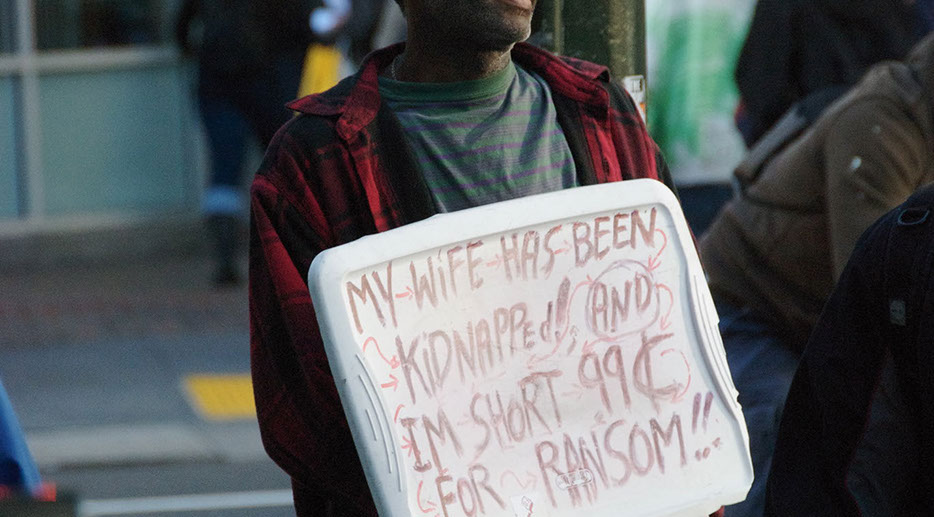 MY WiFE HAS BEEN
KiDNAPPEd!! AND
IM SHORT 99¢
FOR RANSOM!!